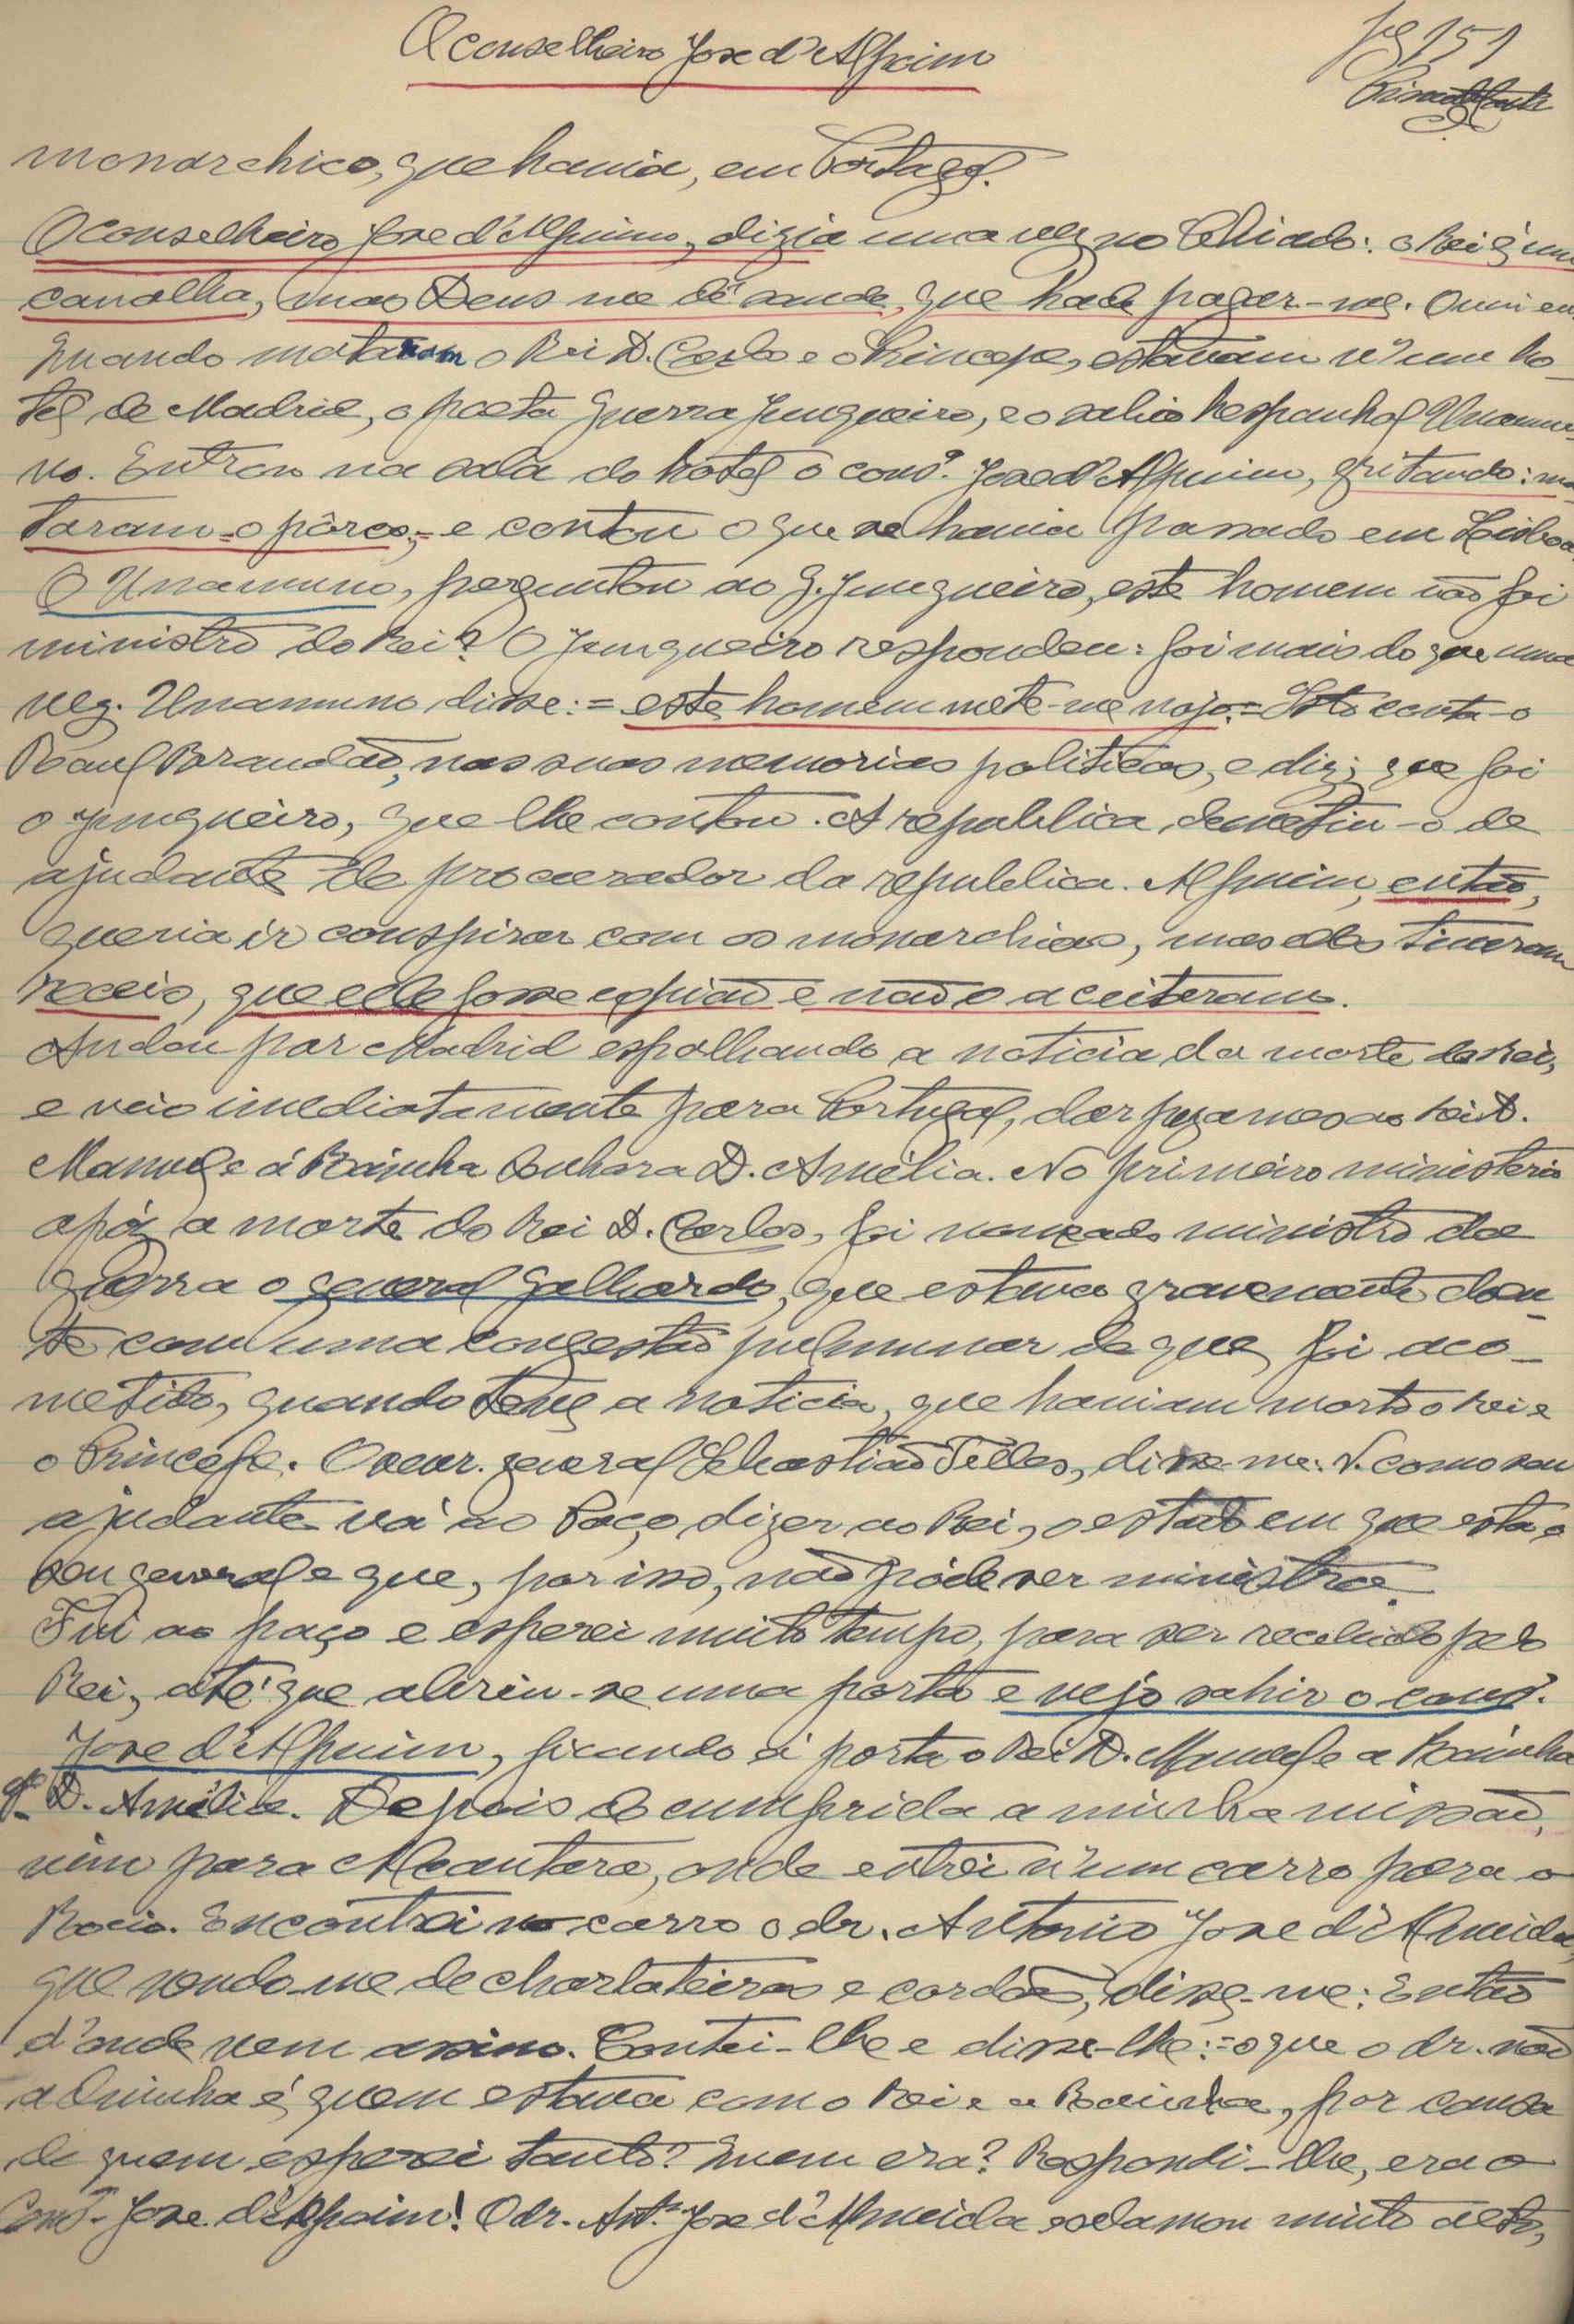 O conselheiro Jose d'Alpoim
fg 151
monarchico, que havia, em Portugal.
O conselheiro Jose d'Alpoim, dizia uma vez no Chiado: o Rei é um
canalha, mas Deus me dê saude, que hade pagar-me. Ouvi eu.
Quando mataram o Rei D. Carlos e o Principe, estavam n'um ho-
tel de Madrid, o poeta Guerra Junqueiro, e o sabio hespanhol Unamu-
no. Entrou na sala do hotel o cons.º Jose d'Alpoim, gritando: ma-
taram-o pôrco;= e contou o que se havia passado em Lisboa.
O Unamuno, perguntou ao G. Junqueiro, este homem não foi
ministro do Rei? O Junqueiro respondeu: foi mais do que uma
vez. Unamuno disse:= este homem mete-me nojo.= Isto conta-o
Raul Brandão, nas suas memorias politicas, e diz; que foi
o Junqueiro, que lhe contou. A republica, demetiu-o de
ajudante de procurador da republica. Alpoim, então,
queria ir conspirar com os monarchicos, mas elles tiveram
receio, que elle fosse espião e não o aceiteram.
Andou por Madrid espalhando a noticia da morte do Rei,
e veio imediatamente para Portugal, dar pezames ao Rei D.
Manuel e á Rainha Senhora D. Amélia. No primeiro ministerio
após a morte do Rei D. Carlos, foi nomeado ministro da
guerra o general Galhardo, que estava gravemente doen-
te com uma congestão pulmunar de que foi aco-
metido, quando teve a noticia, que haviam morto o Rei e
o Principe. O general Sebastião Telles, disse-me: V. como seu
ajudante vá ao Paço, dizer ao Rei, o estado em que está o
seu general e que, por isso, não póde ser ministro.
Fui ao paço e esperei muito tempo, para ser recebido pelo
Rei, até que abriu-se uma porta e vejo sahir o cons.º
Jose d'Alpoim, ficando á porta o Rei D. Manuel e a Rainha
Sª D. Amélia. Depois de cumprida a minha missão,
vim para Alcantara, onde entrei n'um carro para o
Rocio. Encontrei no carro o dr. Antonio Jose d'Almeida,
que vendo-me de charlateiras e cordões, disse-me: Então
d'onde vem assim. Contei-lhe e disse-lhe:= o que o dr. não
adivinha é quem estava com o Rei e a Rainha, por causa
de quem esperei tanto? Quem era? Respondi-lhe, era o
Cons.º Jose d'Alpoim! O dr. Antº Jose d'Almeida exclamou muito alto,